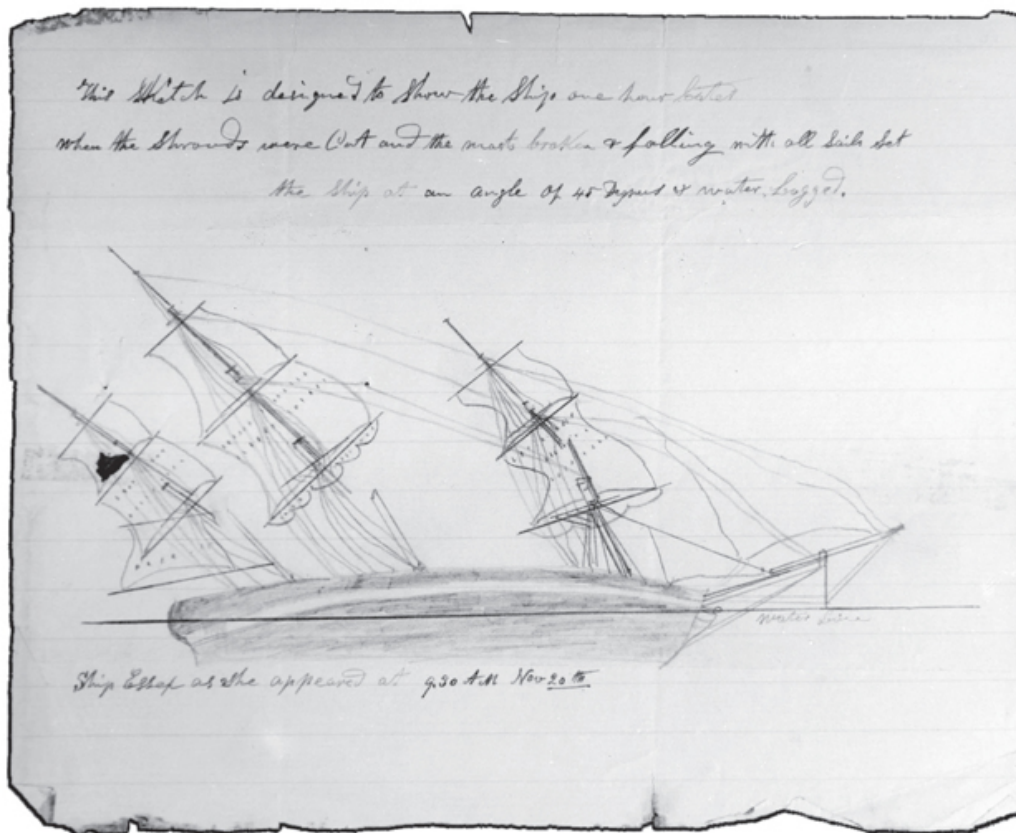 This Sketch is designed to Show the Ship one hour later
when the Shrouds were Cut and the mast broken & falling with all Sails Set
the Ship at an angle of 45 Degrees & water Logged.
Water Line
Ship Essex as She appeared at 9.30 AM Nov 20th